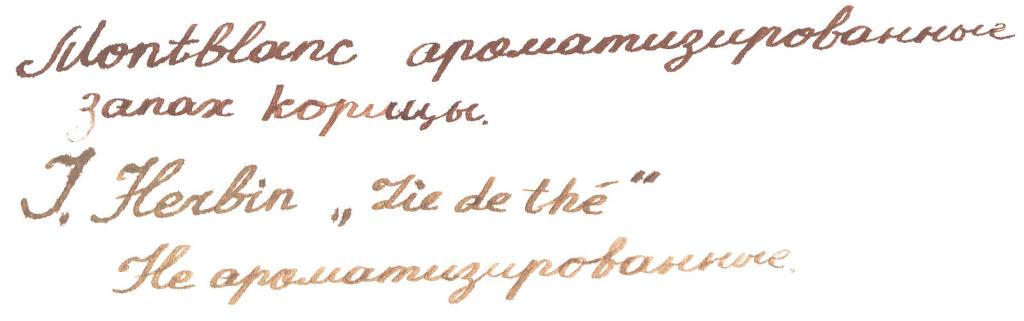 Montblanc ароматизированные
запах корицы.
J. Herbin „Lie de thé“
Не ароматизированные.